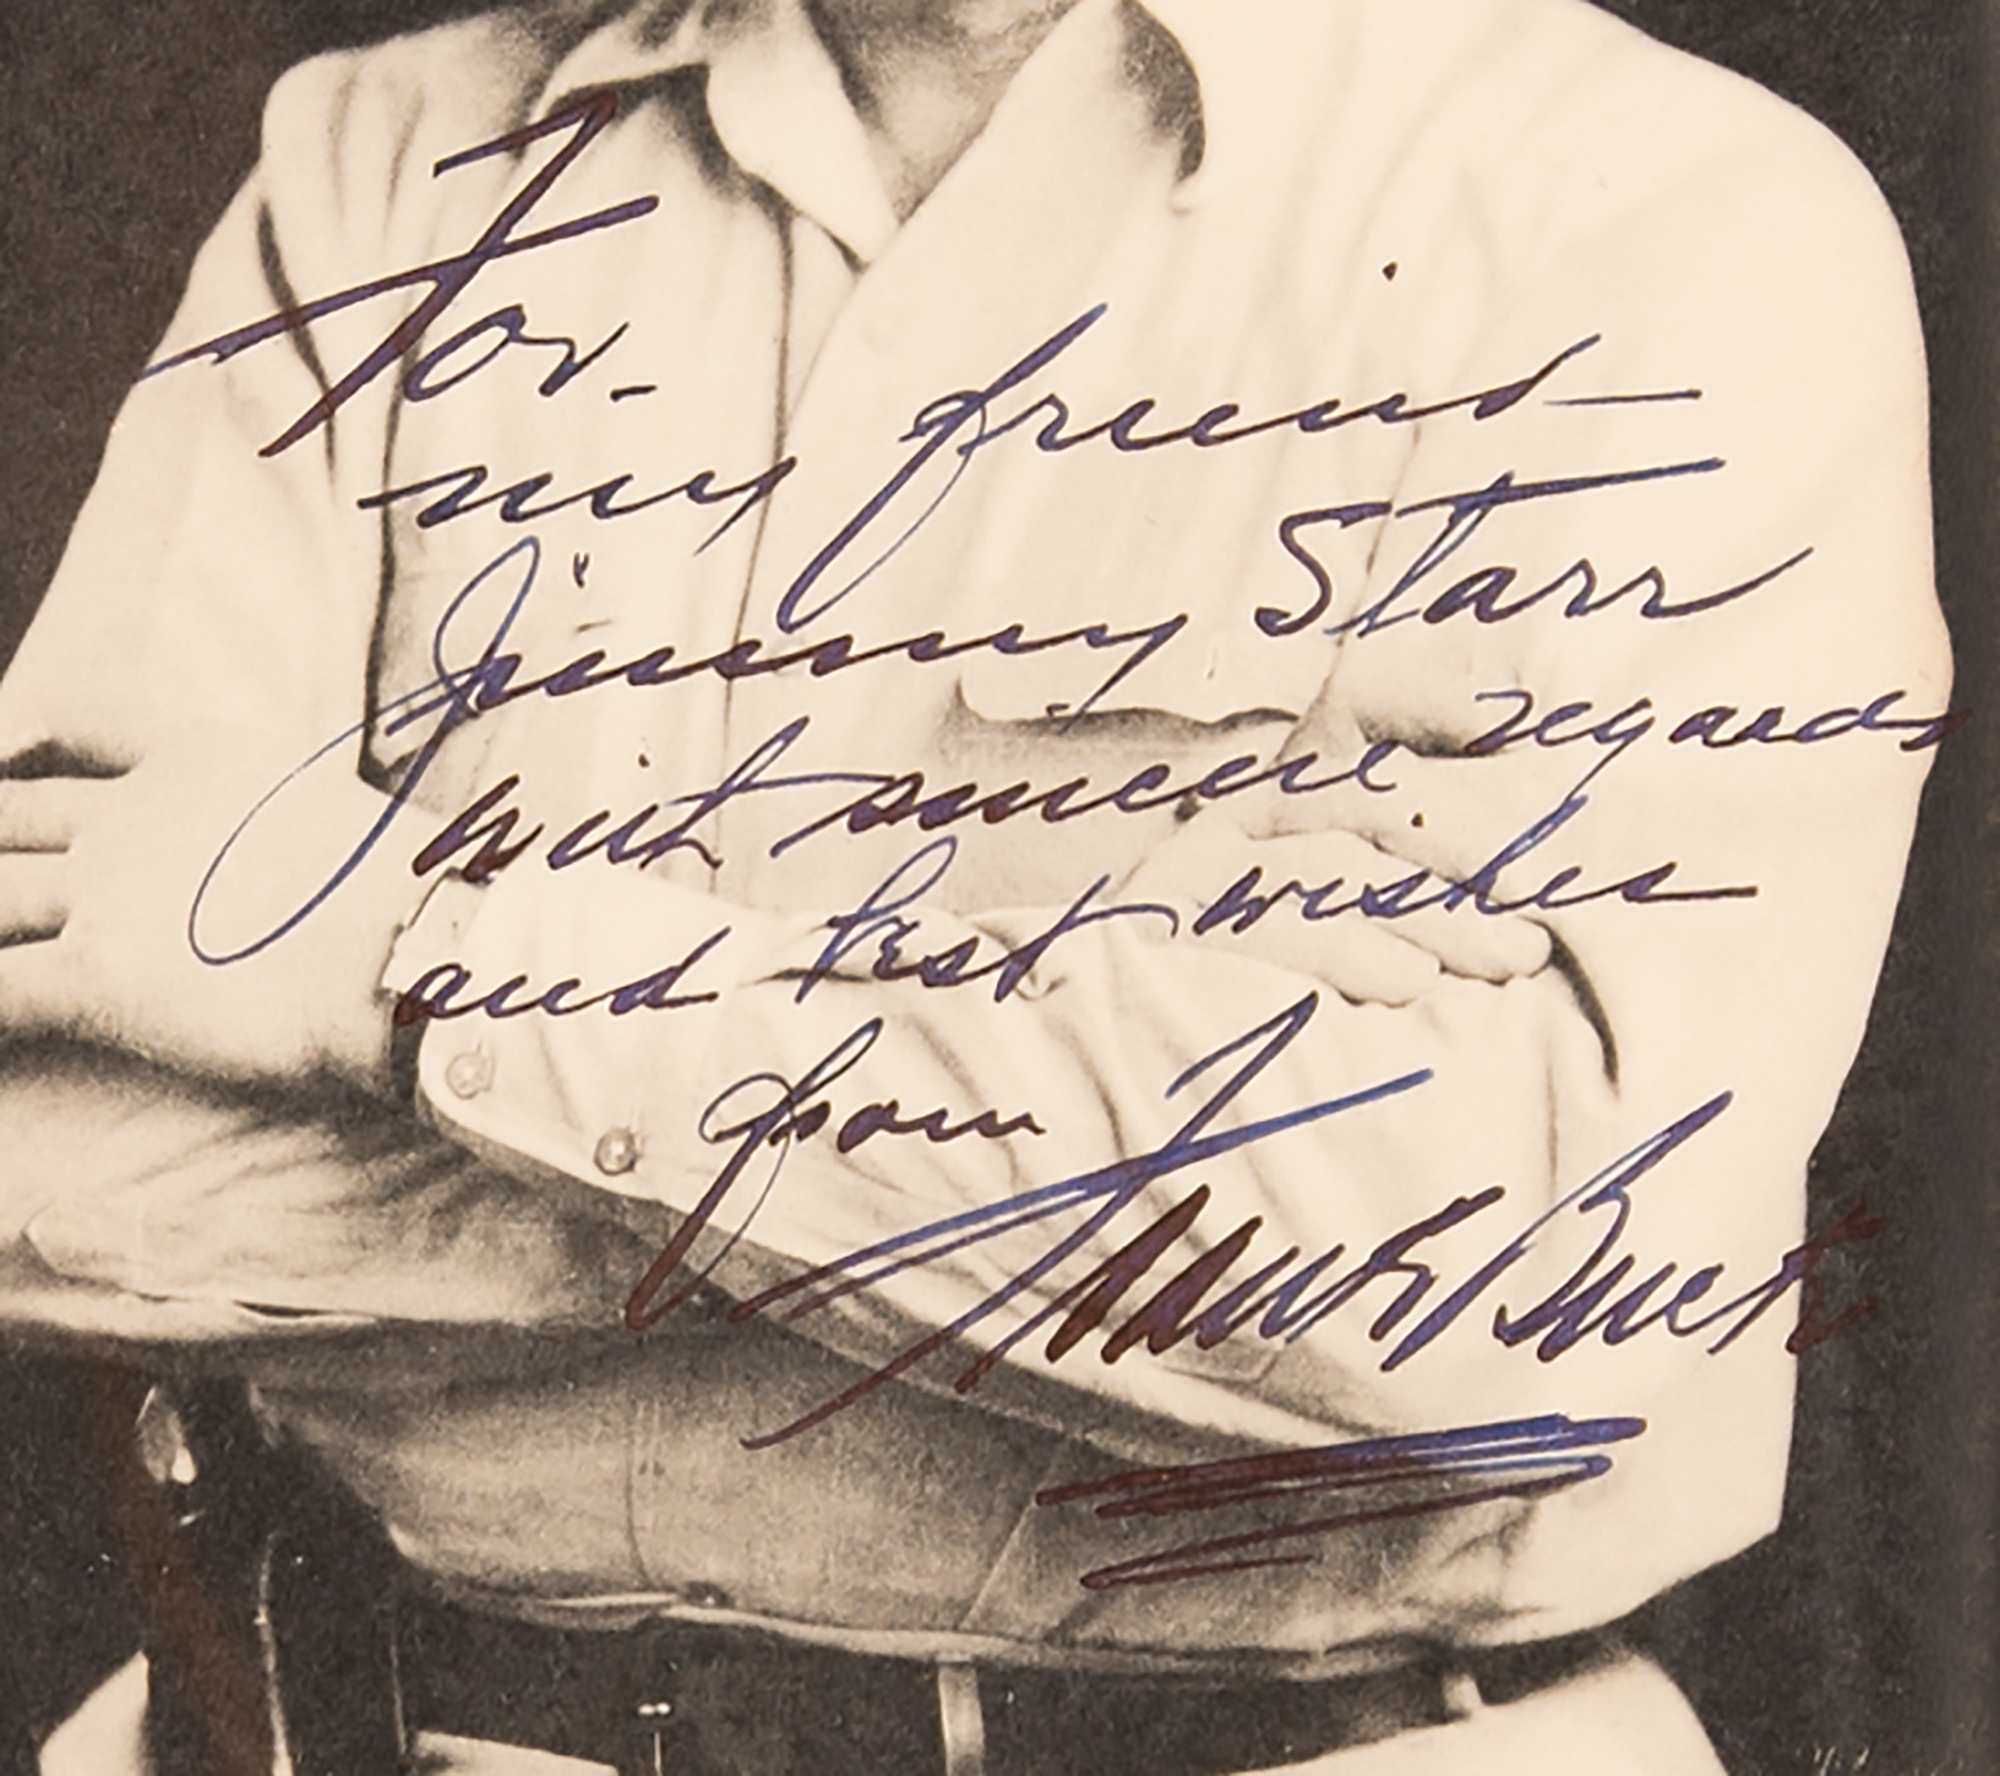 For-
my friend
Jimmy Starr
with sincere regards
and best wishes
from
Frank Buck